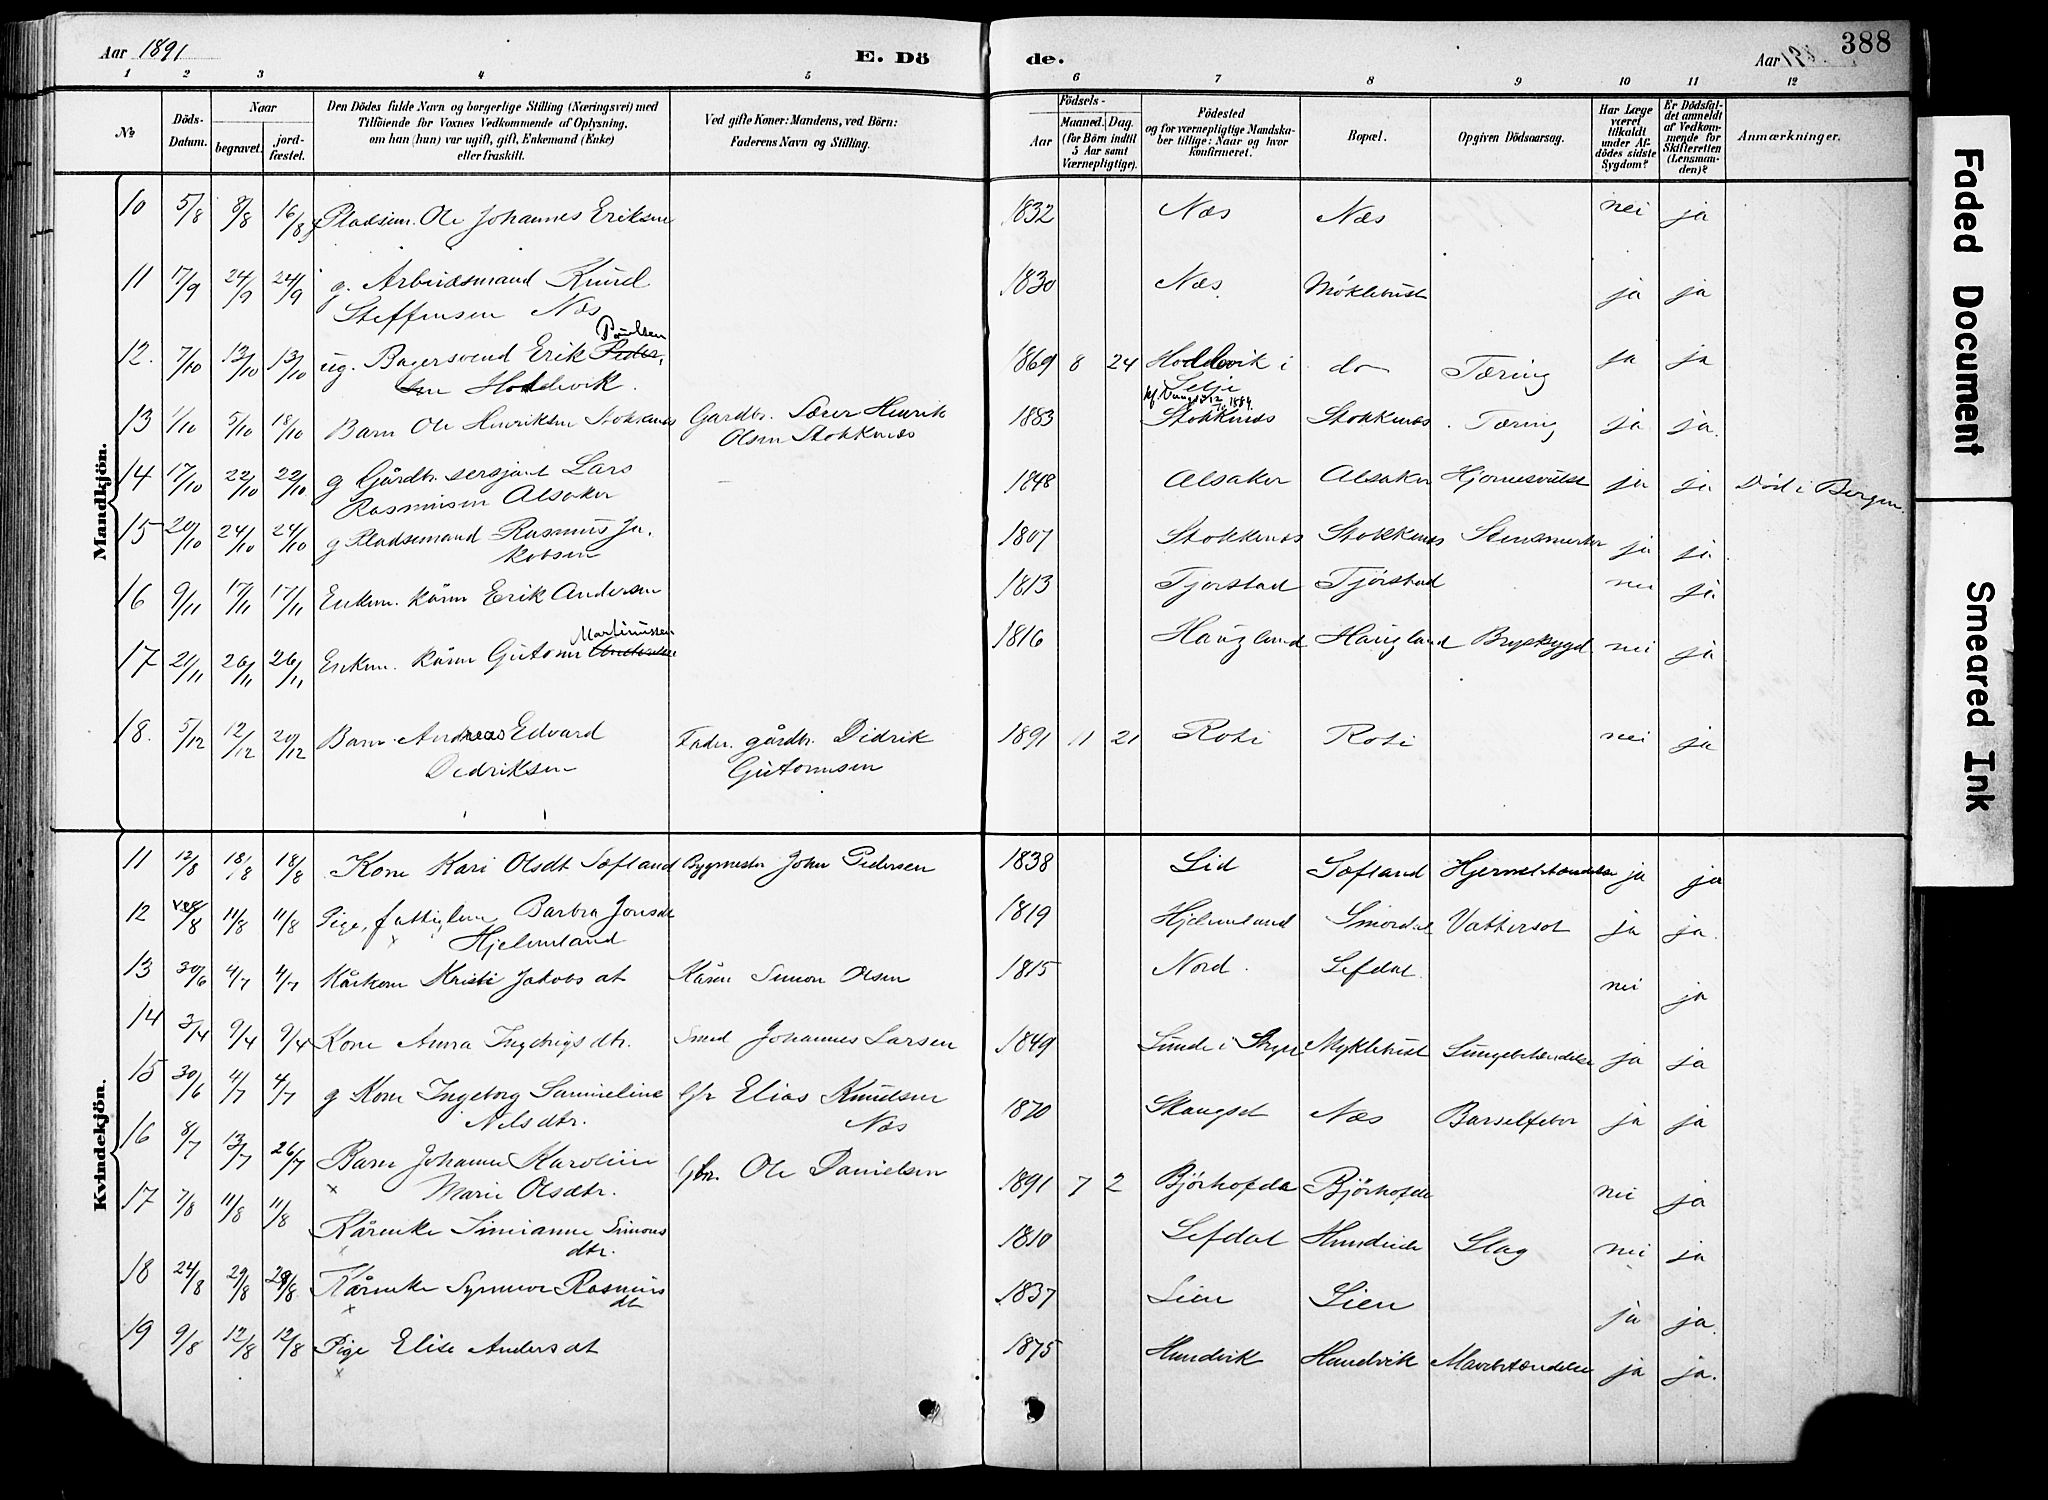 Aar 1891
E. Dö
de.
Aar 1891
388
1 2 3 4 5 6 7 8 9 10 11 12
№
Döds-
Datum.
Naar
begravet.
jord-
fæstet.
Den Dödes fulde Navn og borgerlige Stilling (Næringsvei) med
Tilföiende for Voxnes Vedkommende af Oplysning,
om han (hun) var ugift, gift, Enkemand (Enke)
eller fraskilt.
Ved gifte Koner: Mandens, ved Börn:
Faderens Navn og Stilling.
Födsels-
Aar
Maaned. Dag.
(for Börn indtil
5 Aar samt
Værnepligtige).
Födested
og for værnepligtige Mandska-
ber tillige: Naar og hvor
konfirmeret.
Bopæl.
Opgiven Dödsaarsag.
Har Læge
været
tilkaldt
under Af-
dödes sidste
Sygdom?
Er Dödsfal-
det anmeldt
af Vedkom-
mende for
Skifteretten
(Lensman-
den)?
Anmærkninger.
Mandkjön.
10 5/8 8/8 16/8 Pladsm. Ole Johannes Eriksen 1832 Næs Næs nei ja
11 17/9 24/9 24/9 g. Arbeidsmand Knud 1830 Næs Möklebust ja ja
Steffensen Næs
Paulsen
12. 7/10 13/10 13/10 ug. Bagersvend Erik Peder- 1869 8 24 Hoddevik i do Tæring ja ja
sen Hoddevik. Selje
13 1/10 5/10 18/10 Barn Ole Henriksen Stokknæs Gardbr. Sæver Henrik 1883 Stokknæs Stokknæs Tæring ja ja.
Olsen Stokknæs
14 17/10 22/10 22/10 g Gårdbr. sersjant Lars 1848 Alsaker Alsaker Hjernesvulst ja ja Död i Bergen.
Rasmusen Alsaker
15 20/10 24/10 24/10 g Pladsemand Rasmus Ja- 1807 Stokknæs Stokknæs Stensmerter ja ja.
kobsen
16 9/11 17/11 17/11 Enkem. kårm Erik Andersen 1813 Tjorstad Tjörstad nei ja
Martinussen
17 21/11 26/11 26/11 Enkem. kårm Gutorm Andersen 1816 Haugland Haugland Brystsygd nei ja
18. 5/12 12/12 20/12 Barn Andreas Edvard Fader. gårdbr. Didrik 1891 11 21 Roti Roti nei ja
Dedriksen Gutormsen
Kvindekjön.
11 12/8 18/8 18/8 Kone Kari Olsdt Sæfland Bygmester John Pedersen 1838 Lid Sæfland Hjernebetændelse ja ja
12 /8 11/8 11/8 Pige, fattiglem Barbra Jonsdt 1819 Hjelmeland Smördal Vattersot ja ja.
Hjelmeland
13 30/6 4/7 4/7 Kårkone Kristi Jakobsdt Kårm Simon Olsen 1815 Nord. Lefdal nei ja
14 3/4 9/4 9/4 Kone Anna Ingebrigsdtr. Smed Johannes Larsen 1849 Sunde i Stryn Myklebust Lungebetændelse ja ja
15 30/6 4/7 4/7 g Kone Ingeborg Sammeline Gbr Elias Knudsen 1870 Skaugset Næs Barselfeber ja ja
Nilsdtr. Næs
16 8/7 13/7 26/7 Barn Johanne Karoline Gbr. Ole Danielsen 1891 7 2 Björhofde Björhofde nei ja
Marie Olsdtr.
17 7/8 11/8 11/8 Kårenke Simianne Simons 1810 Lefdal Hundeide Slag nei ja
dtr.
18 24/8 29/8 29/8 Kårenke Synnøve Rasmus 1837 Lien Lien ja ja.
dt
19 9/8 12/8 12/8 Pige Elise Andersdt 1875 Hundvik Hundvik Mavebetændelse ja ja.
Faded Document
Smeared Ink